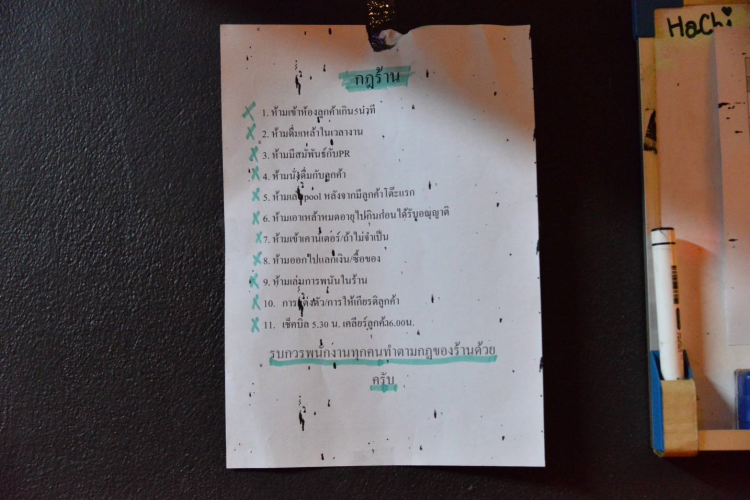 HaChi
กฎร้าน
1. ห้ามเข้าห้องลูกค้าเกิน5นาที
2. ห้ามดื่มเหล้าในเวลางาน
3. ห้ามมีสัมพันธ์กับPR
4. ห้ามนั่งดื่มกับลูกค้า
5. ห้ามเล่นpool หลังจากมีลูกค้าโต๊ะแรก
6. ห้ามเอาเหล้าหมดอายุไปกินก่อนได้รับอณุญาติ
7. ห้ามเข้าเคาน์เตอร์/ถ้าไม่จำเป็น
8. ห้ามออกไปแลกเงิน/ซื้อของ
9. ห้ามเล่นการพนันในร้าน
10. การแต่งตัว/การให้เกียรติลูกค้า
11. เช็คบิล 5.30 น. เคลียร์ลูกค้า6.00น.
รบกวรพนักงานทุกคนทำตามกฎของร้านด้วย
ครับ